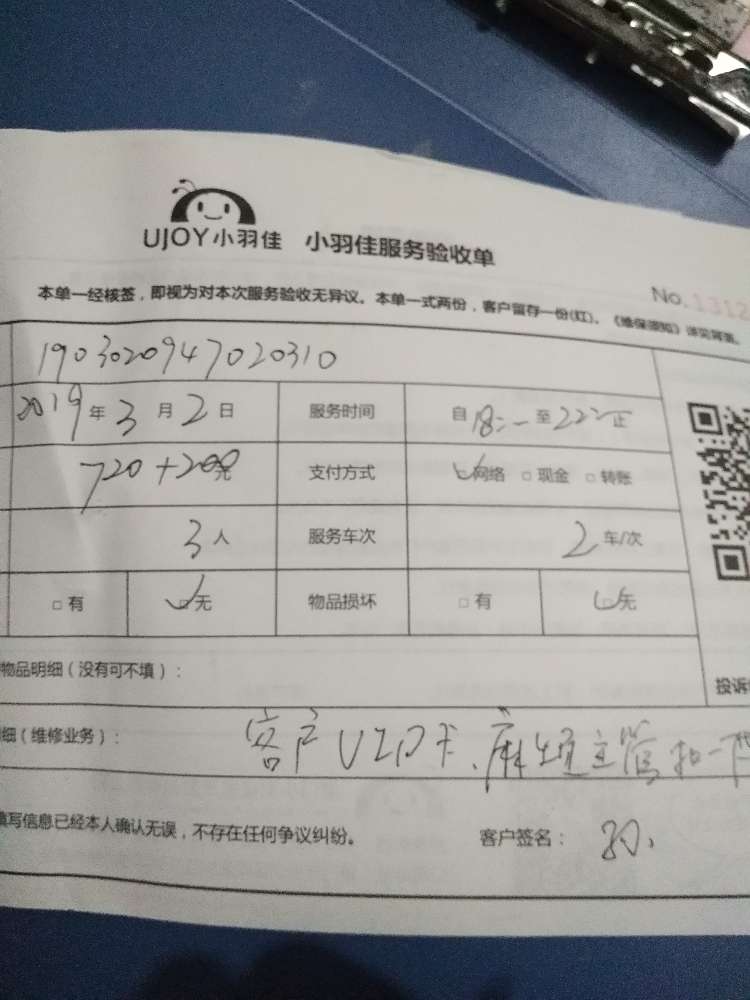 UJOY小羽佳 小羽佳服务验收单
No.1312
本单一经核签，即视为对本次服务验收无异议。本单一式两份，客户留存一份(红)。《维保须知》详见背面。
1903020947020310
2019年3月2日 服务时间 自18:- 至22: 止
720+200元 支付方式 □网络 □现金 □转账
3人 服务车次 2车/次
□有 □无 物品损坏 □有 □无
物品明细（没有可不填）：
投诉
细（维修业务）： 客户VIP卡、麻烦主管扣一下
填写信息已经本人确认无误，不存在任何争议纠纷。 客户签名：